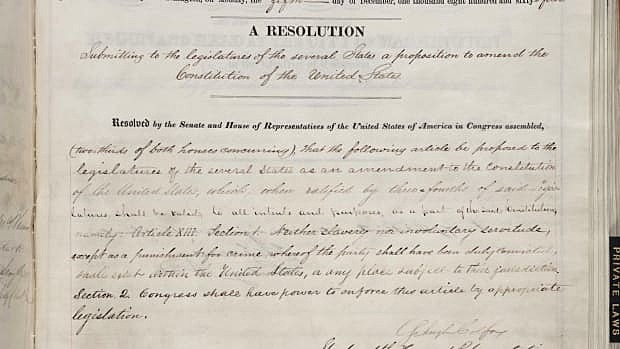 on Monday, the fifth day of December, one thousand eight hundred and sixty-four
A RESOLUTION
Submitting to the legislatures of the several States a proposition to amend the
Constitution of the United States.
Resolved by the Senate and House of Representatives of the United States of America in Congress assembled,
(two-thirds of both houses concurring), That the following article be proposed to the
legislatures of the several States as an amendment to the Constitution
of the United States, which, when ratified by three-fourths of said Legis-
latures shall be valid, to all intents and purposes, as a part of the said Constitution,
namely: Article XIII. Section 1. Neither Slavery nor involuntary servitude,
except as a punishment for crime whereof the party shall have been duly convicted,
shall exist within the United States, or any place subject to their jurisdiction.
Section 2. Congress shall have power to enforce this article by appropriate
legislation.
Schuyler Colfax
PRIVATE LAWS